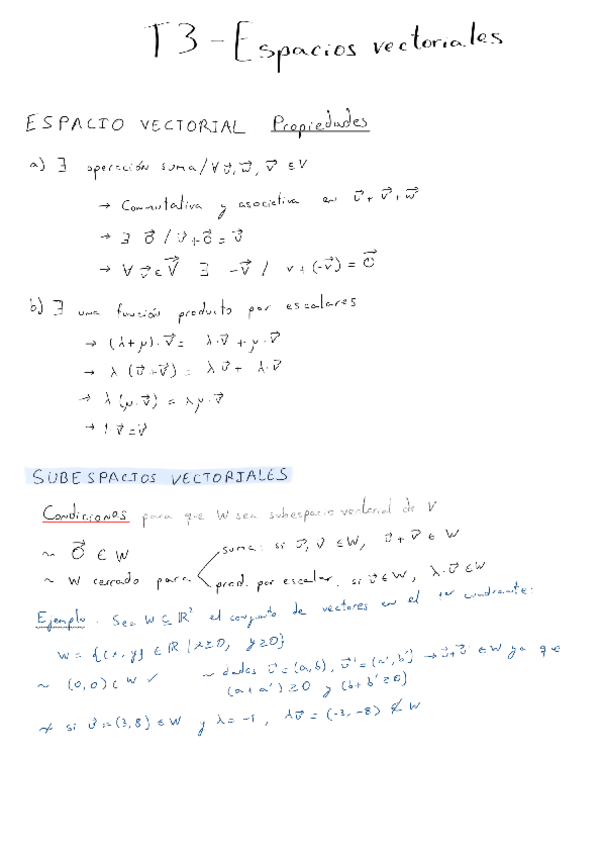 T3 - Espacios vectoriales
ESPACIO VECTORIAL Propiedades
a) ∃ operación suma / ∀ u⃗, w⃗, v⃗ ∈ V
→ Conmutativa y asociativa en u⃗ + v⃗ + w⃗
→ ∃ 0⃗ / v⃗ + 0⃗ = v⃗
→ ∀ v⃗ ∈ V⃗ ∃ -v⃗ / v + (-v⃗) = 0⃗
b) ∃ una función producto por escalares
→ (λ+μ)·v⃗ = λ·v⃗ + μ·v⃗
→ λ (u⃗+v⃗) = λu⃗ + λ·v⃗
→ λ (μ·v⃗) = λμ·v⃗
→ 1·v⃗ = v⃗
SUBESPACIOS VECTORIALES
Condiciones para que W sea subespacio vectorial de V
~ 0⃗ ∈ W
~ W cerrado para suma: si u⃗, v⃗ ∈ W, u⃗ + v⃗ ∈ W
prod. por escalar, si v⃗ ∈ W, λ·v⃗ ∈ W
Ejemplo. Sea W ⊆ ℝ² el conjunto de vectores en el 1er cuadrante:
W = {(x,y) ∈ ℝ | x≥0, y≥0}
~ (0,0) ∈ W ✓ ~ dados u⃗ = (a,b), u⃗' = (a',b') → u⃗+u⃗' ∈ W ya que
(a+a') ≥ 0 y (b+b' ≥ 0)
≁ si v⃗ = (3,8) ∈ W y λ = -1, λv⃗ = (-3,-8) ∉ W